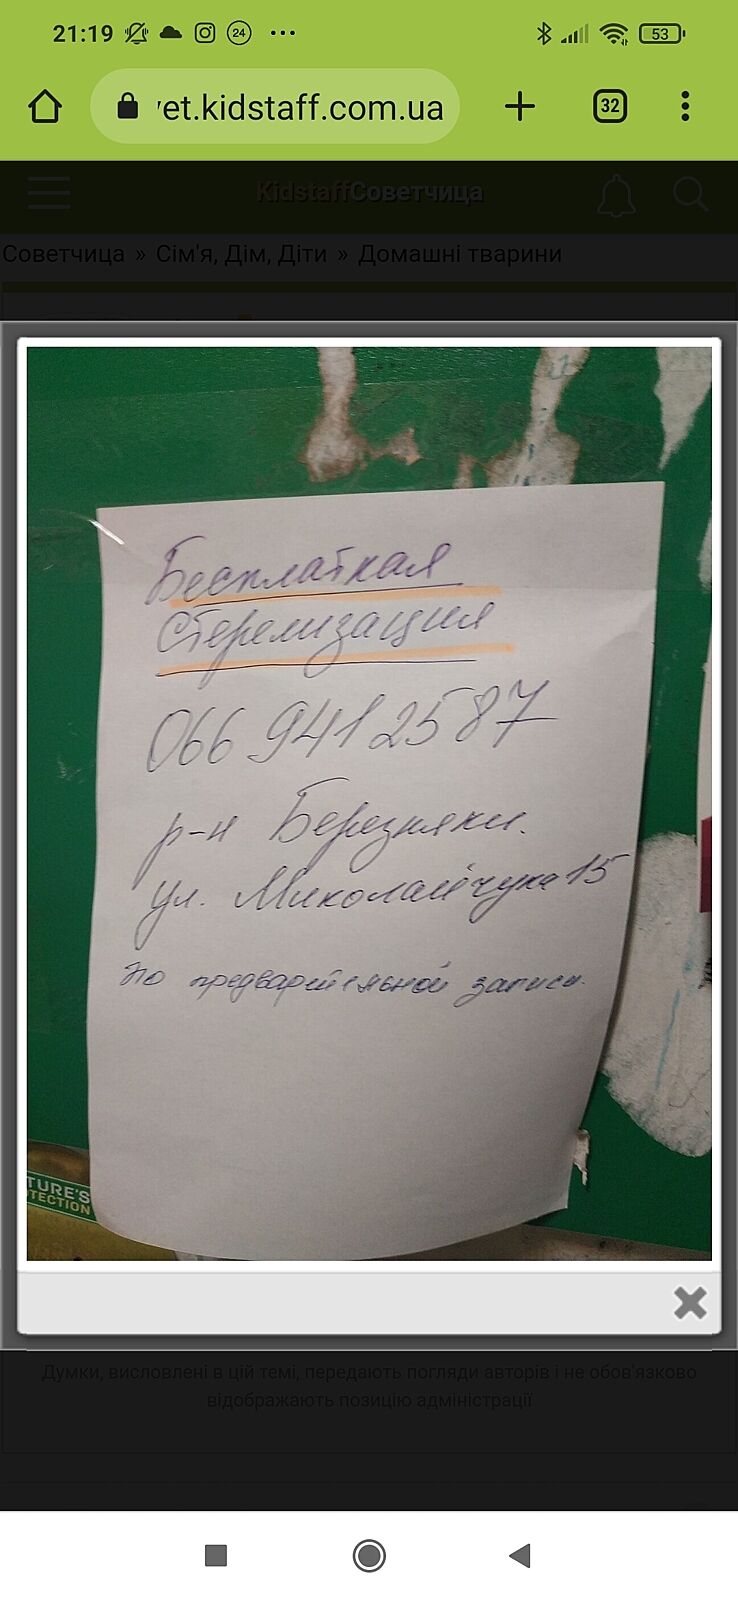 21:19 24 53
vet.kidstaff.com.ua 32
KidstaffСоветчица
Советчица » Сім'я, Дім, Діти » Домашні тварини
Бесплатная
Стерелизация
066 941 25 87
р-н Березняки.
ул. Миколайчука 15
по предварительной записи.
TURE'S
TECTION
Думки, висловлені в цій темі, передають погляди авторів і не обов'язково
відображають позицію адміністрації